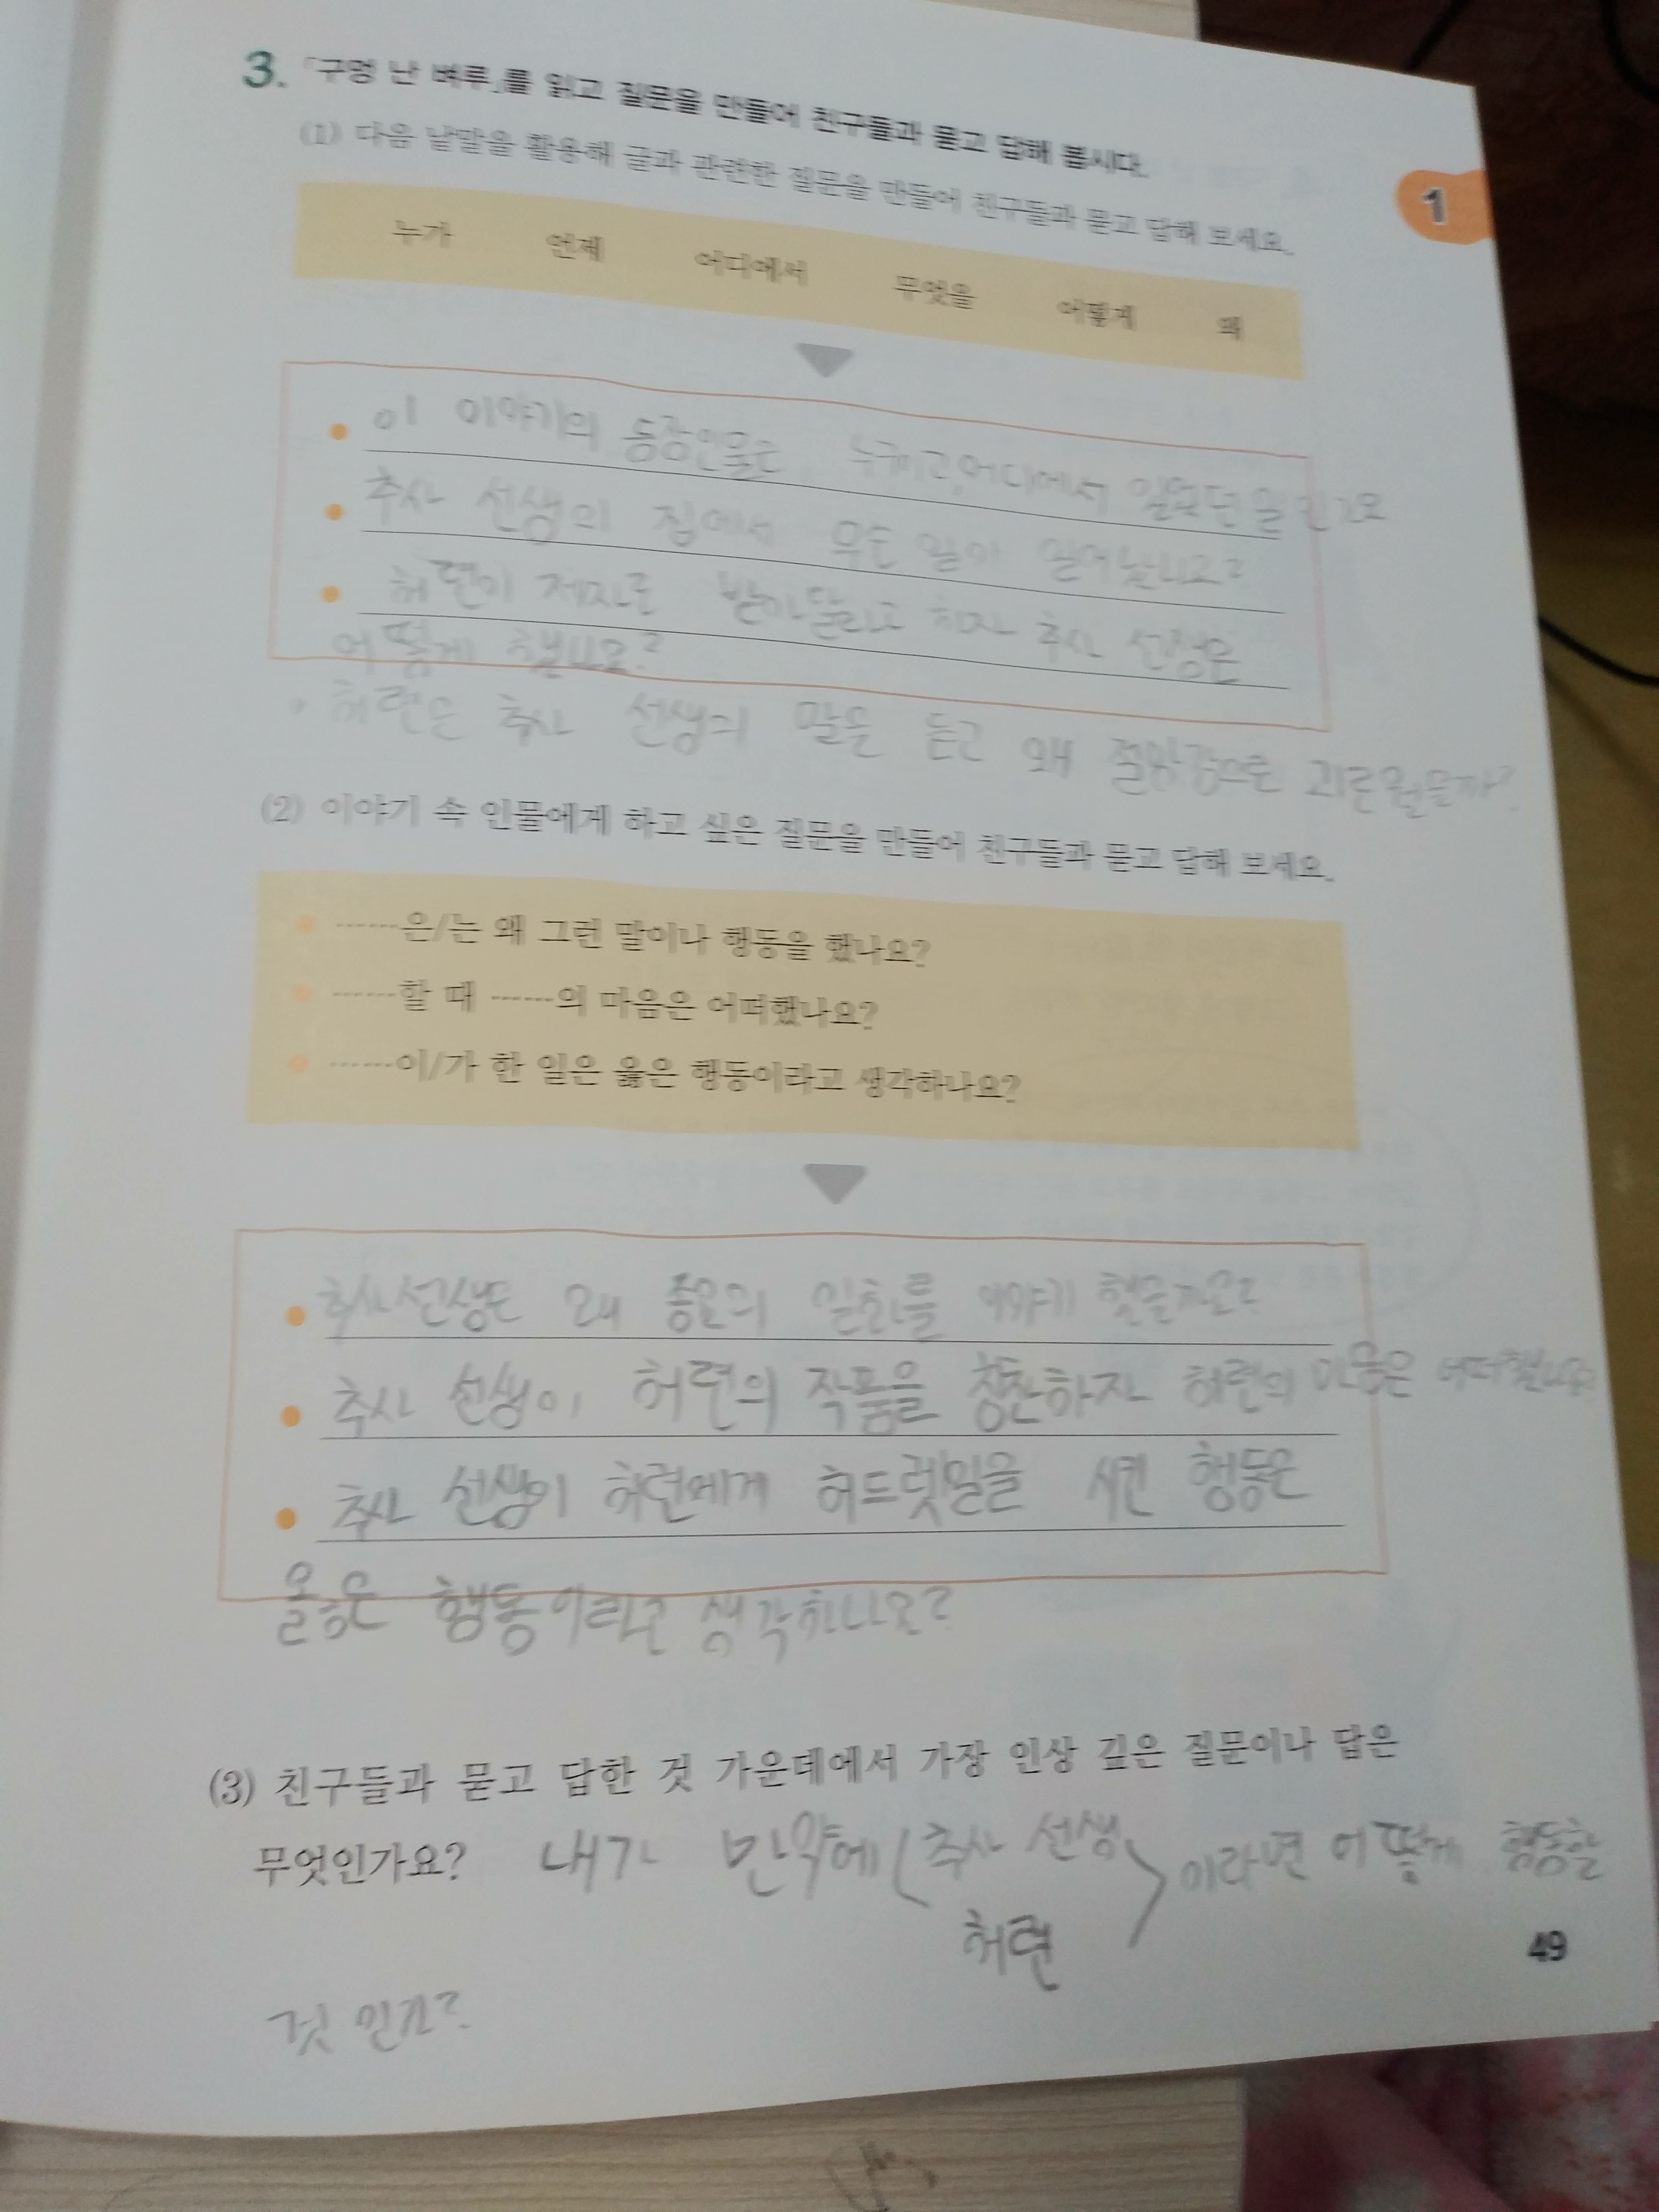 3. 「구멍 난 벼루」를 읽고 질문을 만들어 친구들과 묻고 답해 봅시다.
(1) 다음 낱말을 활용해 글과 관련한 질문을 만들어 친구들과 묻고 답해 보세요.
1
누가 언제 어디에서 무엇을 어떻게 왜
이 이야기의 등장인물은 누구이고, 어디에서 있었던 일인가요
추사 선생의 집에서 무슨 일이 일어났나요?
허련이 제자로 받아달라고 하자 추사 선생은
어떻게 했나요?
허련은 추사 선생의 말을 듣고 왜 절망감으로 괴로웠을까?
(2) 이야기 속 인물에게 하고 싶은 질문을 만들어 친구들과 묻고 답해 보세요.
……은/는 왜 그런 말이나 행동을 했나요?
……할 때 ……의 마음은 어떠했나요?
……이/가 한 일은 옳은 행동이라고 생각하나요?
추사 선생은 왜 일화를 이야기 했을까요?
추사 선생이 허련의 작품을 칭찬하자 허련의 마음은 어떠했나요?
추사 선생이 허련에게 허드렛일을 시킨 행동은
옳은 행동이라고 생각하나요?
(3) 친구들과 묻고 답한 것 가운데에서 가장 인상 깊은 질문이나 답은
무엇인가요? 내가 만약에 (추사 선생 이라면 어떻게 행동할
허련
49
것 인가?